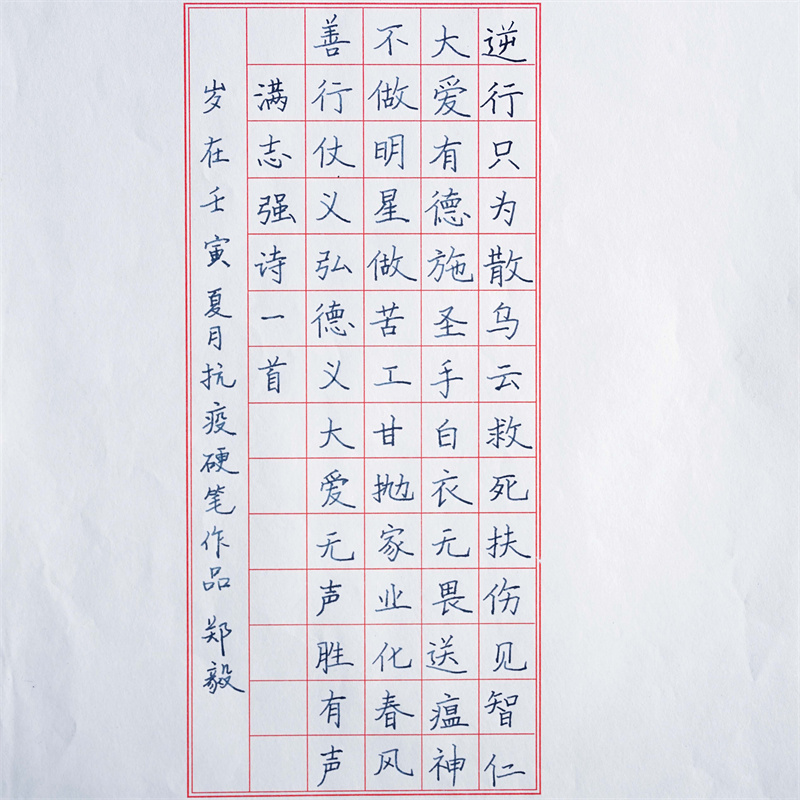 逆行只为散乌云救死扶伤见智仁
大爱有德施圣手白衣无畏送瘟神
不做明星做苦工甘抛家业化春风
善行仗义弘德义大爱无声胜有声
满志强诗一首
岁在壬寅夏月抗疫硬笔作品 郑毅